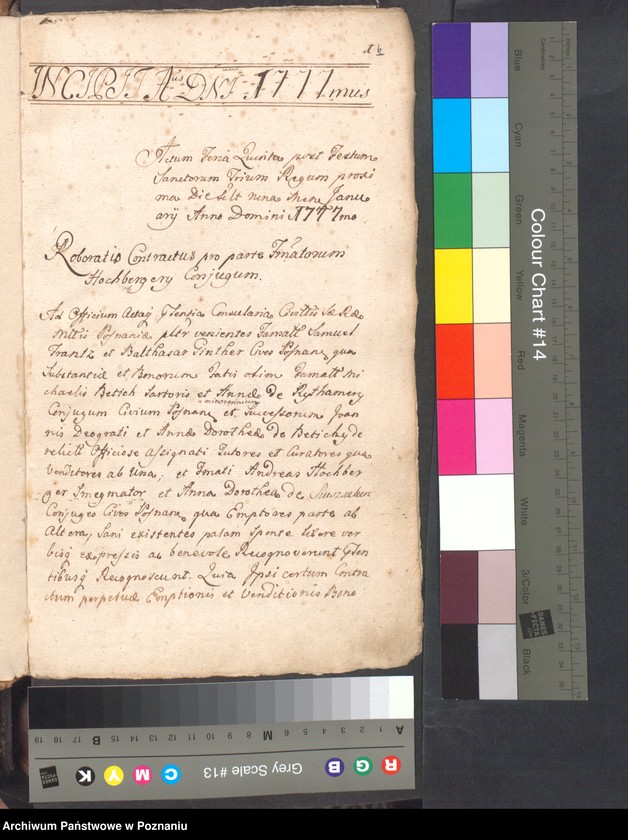 16
INCIPIT Aus DNI 1777mus
Actum Feria Quinta post Festum
Sanctorum Trium Regum proxi
ma Die scilt nona Mens Janu
arij Anno Domini 1777mo.
Roboratio Contractus pro parte Fmatorum
Hochbergery Conjugum.
Ad Officium Actaq Consularia Civittis Sæ Ræ
Mttis Posnaniæ pltr venientes Famatt Samuel
Frantz et Balthasar Ginther Cives Posnan, qua
Substantiæ et Bonorum olim Famatt Mi
chaelis Betich Sartoris et Annæ de Rythamery
minorennium
Conjugum Civium Posnan et Successorum Joan
nis Deograti et Annæ Dorotheæ de Betichy de
relict Officiose assignati Tutores et Curatores qua
Venditores ab Una, et Fmati Andreas Hochber
ger Smegmator et Anna Dorothea de
Conjuges Cives Posnan, qua Emptores parte ab
Altera, Sani existentes palam Sponte libere ver
bisq expressis ac benevole Recognoverunt
tibusq Recognoscunt. Quia Ipsi certum Contra
ctum perpetuæ Emptionis et Venditionis Bono
Colour Chart #14
Blue
Cyan
Green
Yellow
Red
Magenta
White
3/Color
Black
Centimetres
Inches
DANES
PICTA
Grey Scale #13
A 1 2 3 4 5 6 M 8 9 10 11 12 13 14 15 B 17 18 19
R G B C M Y K
Archiwum Państwowe w Poznaniu